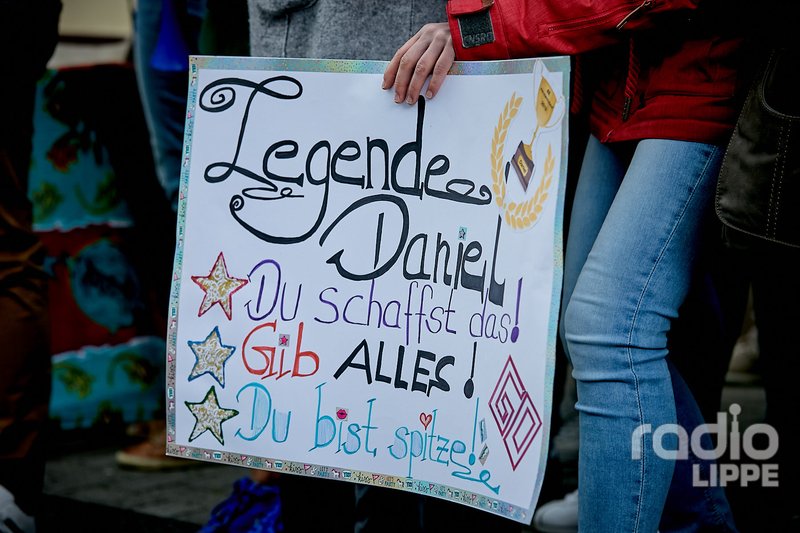 Legende
Daniel
Du schaffst das!
Gib ALLES!
Du bist spitze!
radio
LIPPE